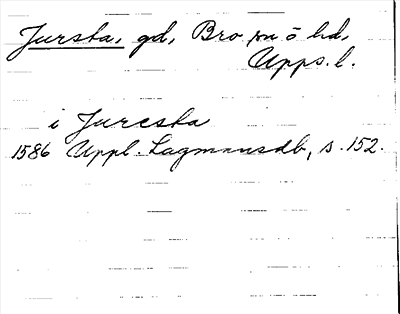 Jursta, gd, Bro sn ö hd,
Upps. l.
i Jurcsta
1586 Uppl. Lagmansdb, s. 152.